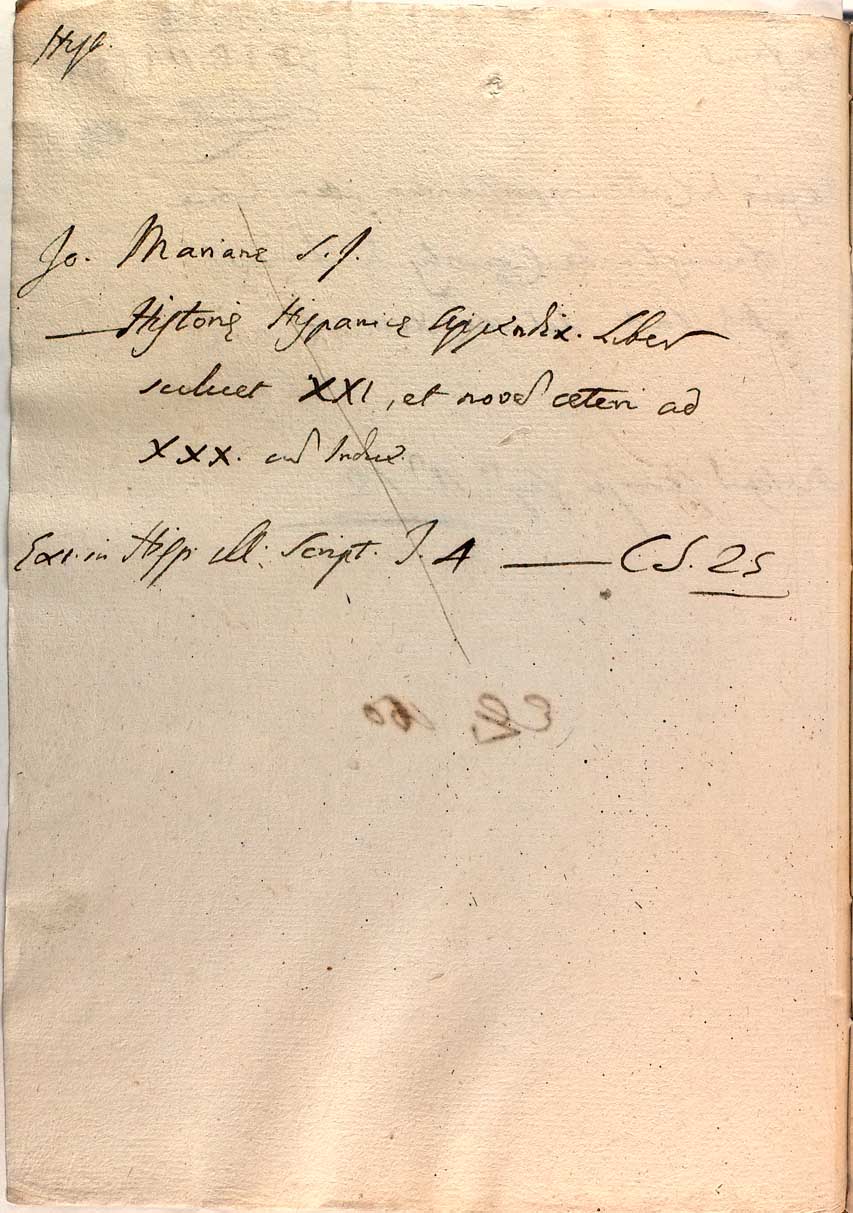 Hisp.
Jo. Mariane S. J.
— Historię Hispanicę Appendix. Liber
scilicet XXI, et novem ceteri ad
XXX. cum Indice
Ext. in Hisp. ill. Script. T. 4 — C S. 25